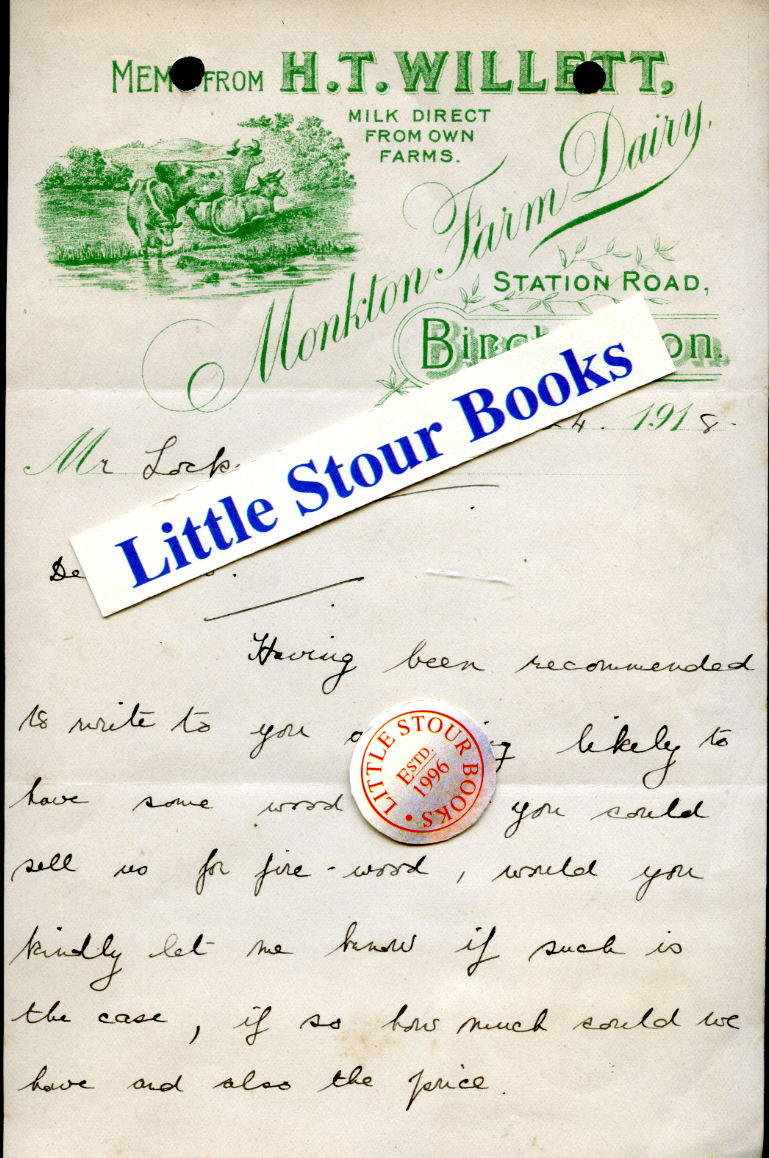 MEM FROM H.T. WILLETT,
MILK DIRECT
FROM OWN
FARMS.
Monkton Farm Dairy.
STATION ROAD,
4. 1918.
Mr Lock
Little Stour Books
Having been recommended
to write to you likely to
LITTLE STOUR BOOKS
ESTD.
1996
have some wood you could
sell us for fire-wood, would you
kindly let me know if such is
the case, if so how much could we
have and also the price.